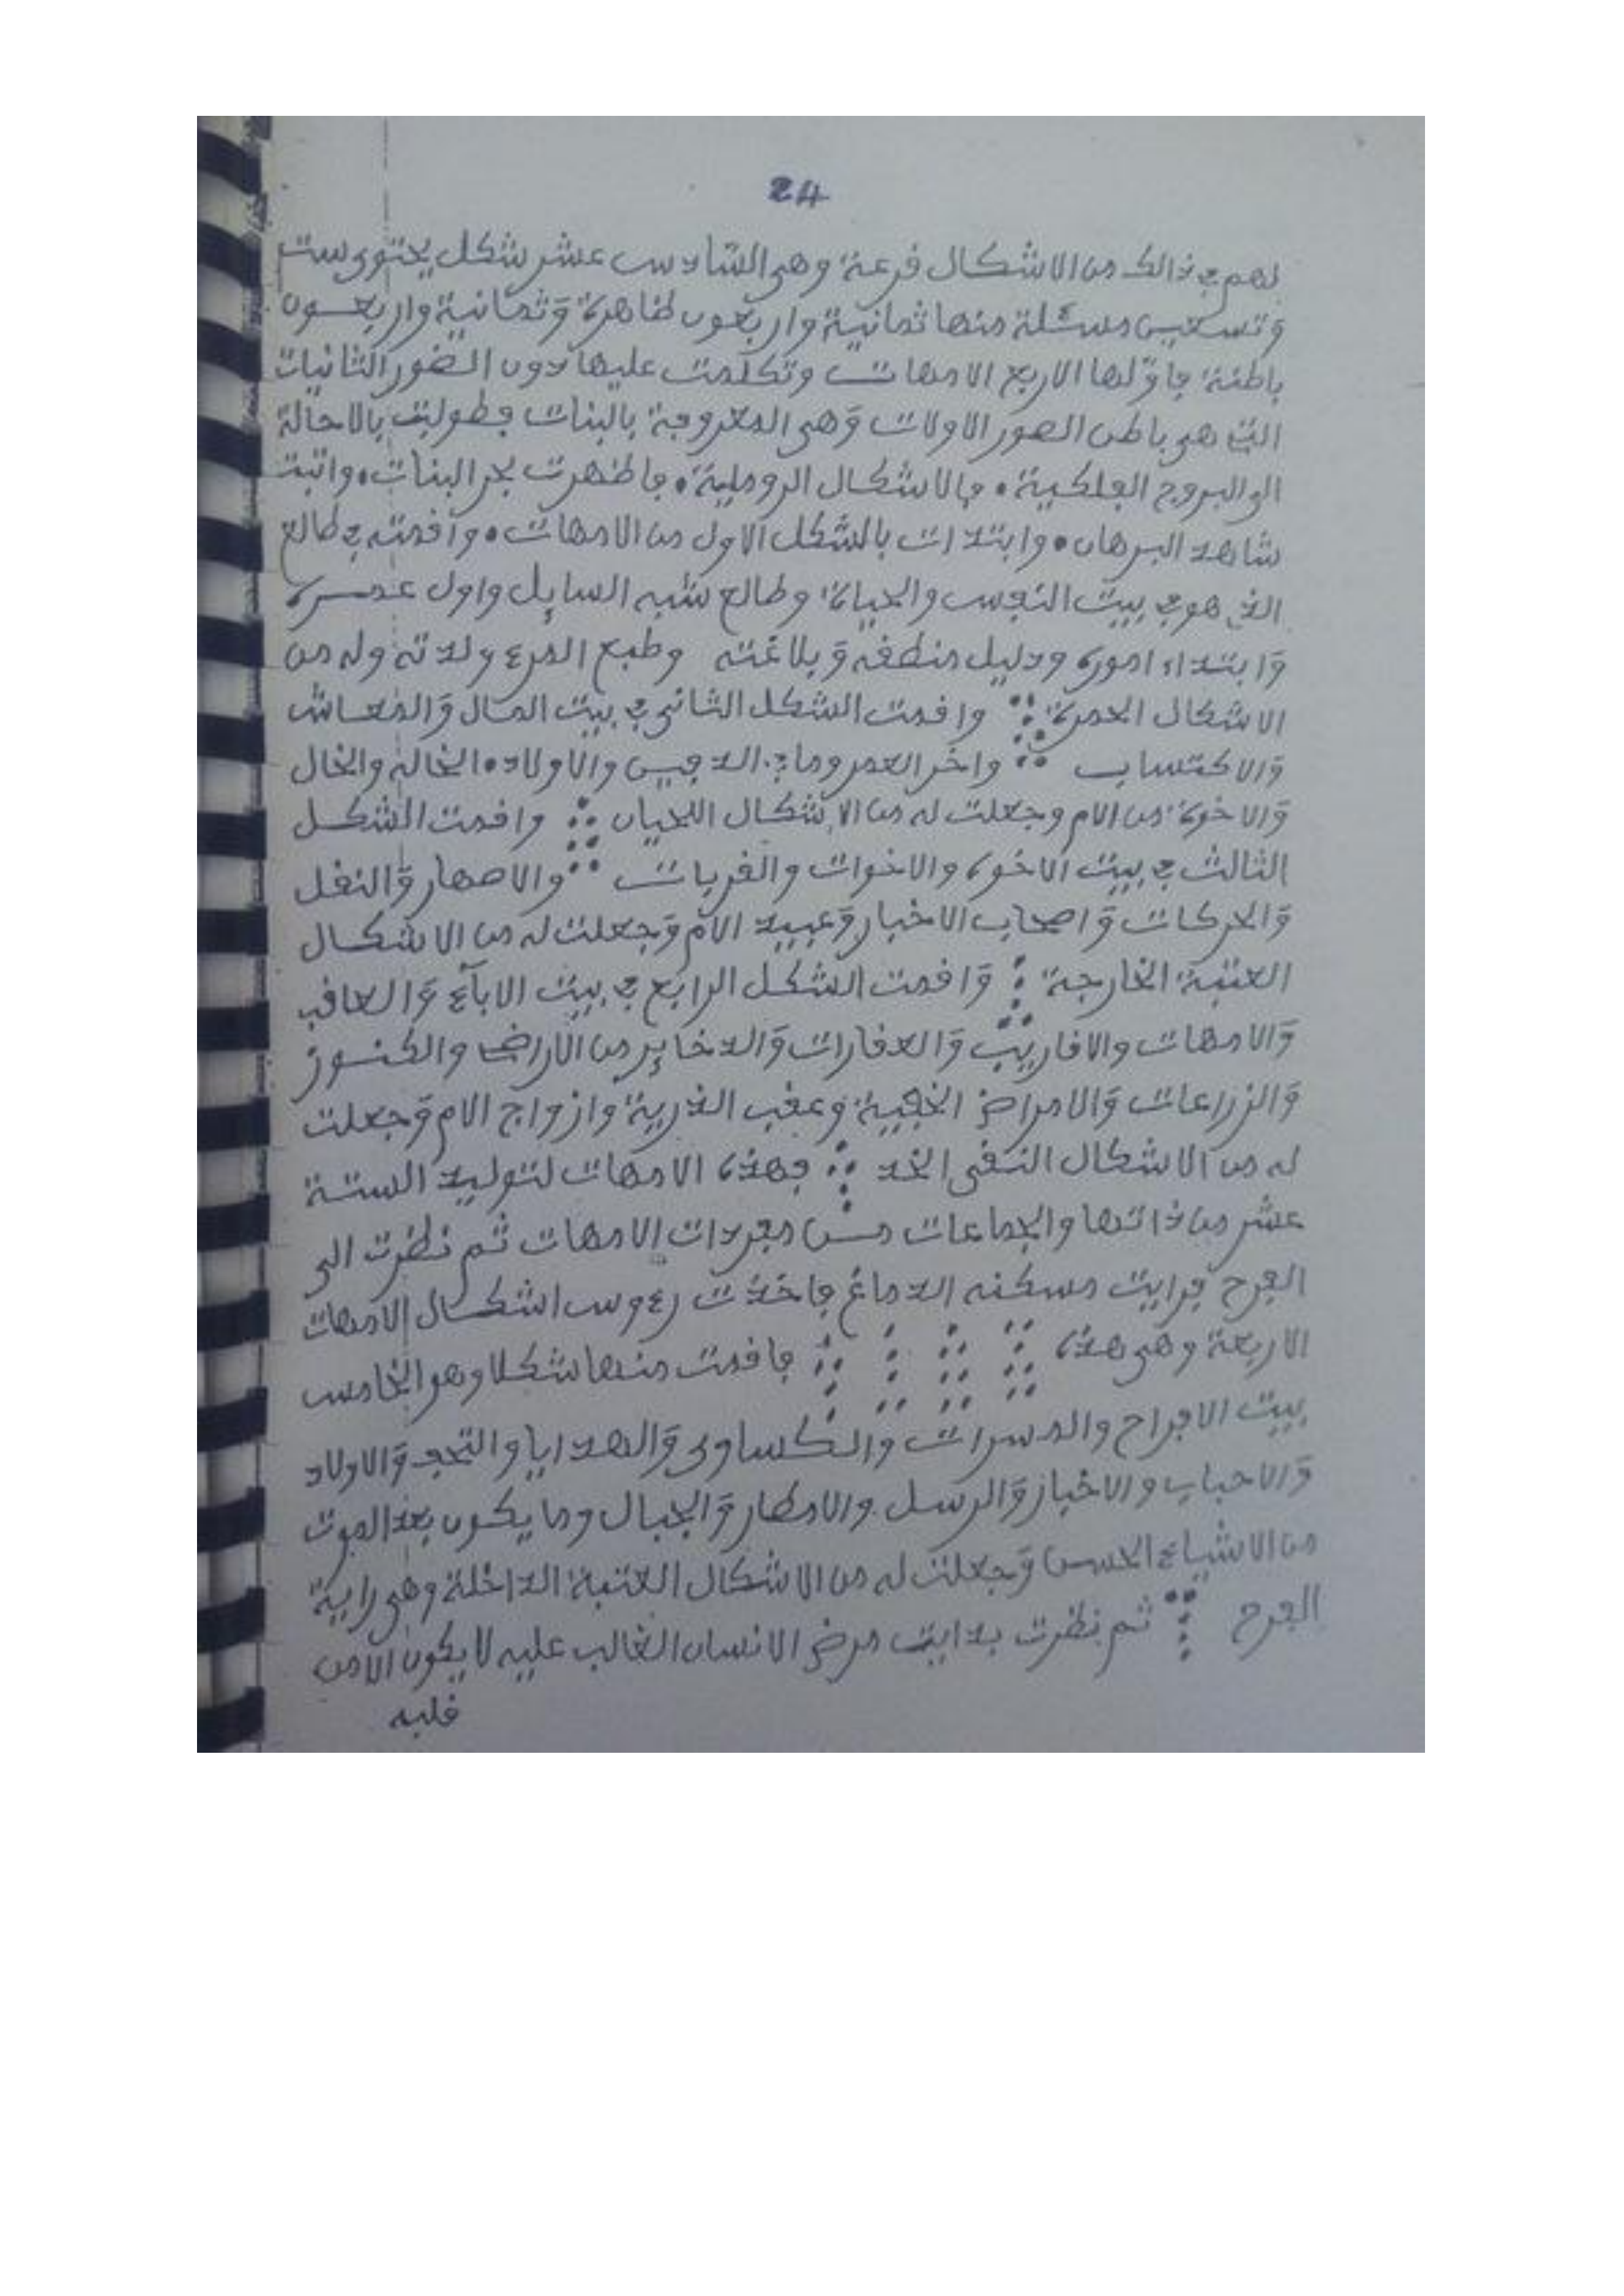 24
لهم في ذالك من الاشكال قرعة وهي السادس عشر شكل يحتوى ست
وتسعين مسئلة منها ثمانية واربعون ظاهرة وثمانية واربعون
باطنة فاولها الاربع الامهات وتكلمت عليها دون الصور الثانيات
التي هي باطن الصور الاولات وهي المعروفة بالبنات فطوليت بالاحالة
الى البروج الفلكية • فالاشكال الروملية • فاظهرت بحر البنات • واتبت
شاهد البرهان • وابتدات بالشكل الاول من الامهات • واقمته في طالع
الذي هو في بيت النفس والحياة وطالع شبه السايل واول عمره
وابتداء اموره ودليل منطقه وبلاغته وطبع المرء ولدته وله من
الاشكال الحمرة واقمت الشكل الثاني في بيت المال والمعاش
والاكتساب واخر العمر وما الدفين والاولاد • الخالة والخال
والاخوة من الام وجعلت له من الاشكال اللحيان واقمت الشكل
الثالث في بيت الاخوة والاخوات والقربات والاصهار والنقل
والحركات واصحاب الاخبار وعبيد الام وجعلت له من الاشكال
العتبة الخارجة واقمت الشكل الرابع في بيت الاباء والعاقب
والامهات والاقاريب والعقارات والدخاير من الاراض والكنوز
والزراعات والامراض الخفية وعقب الذرية وازواج الام وجعلت
له من الاشكال النقى الخد فهذه الامهات لتوليد الستة
عشر من ذاتها والجماعات من مفردات الامهات ثم نظرت الى
الفرح فرايت مسكنه الدماغ فاخذت رءوس اشكال الامهات
الاربعة وهي هذه فاقمت منها شكلا وهو الخامس
بيت الافراح والمسرات والكساوى والهدايا والتحف والاولاد
والاحباب والاخبار والرسل والامطار والجبال وما يكون بعد الموت
من الاشياء الحسن وجعلت له من الاشكال العتبة الداخلة وهي راية
الفرح ثم نظرت بدايت مرض الانسان الغالب عليه لا يكون الا من
قلبه